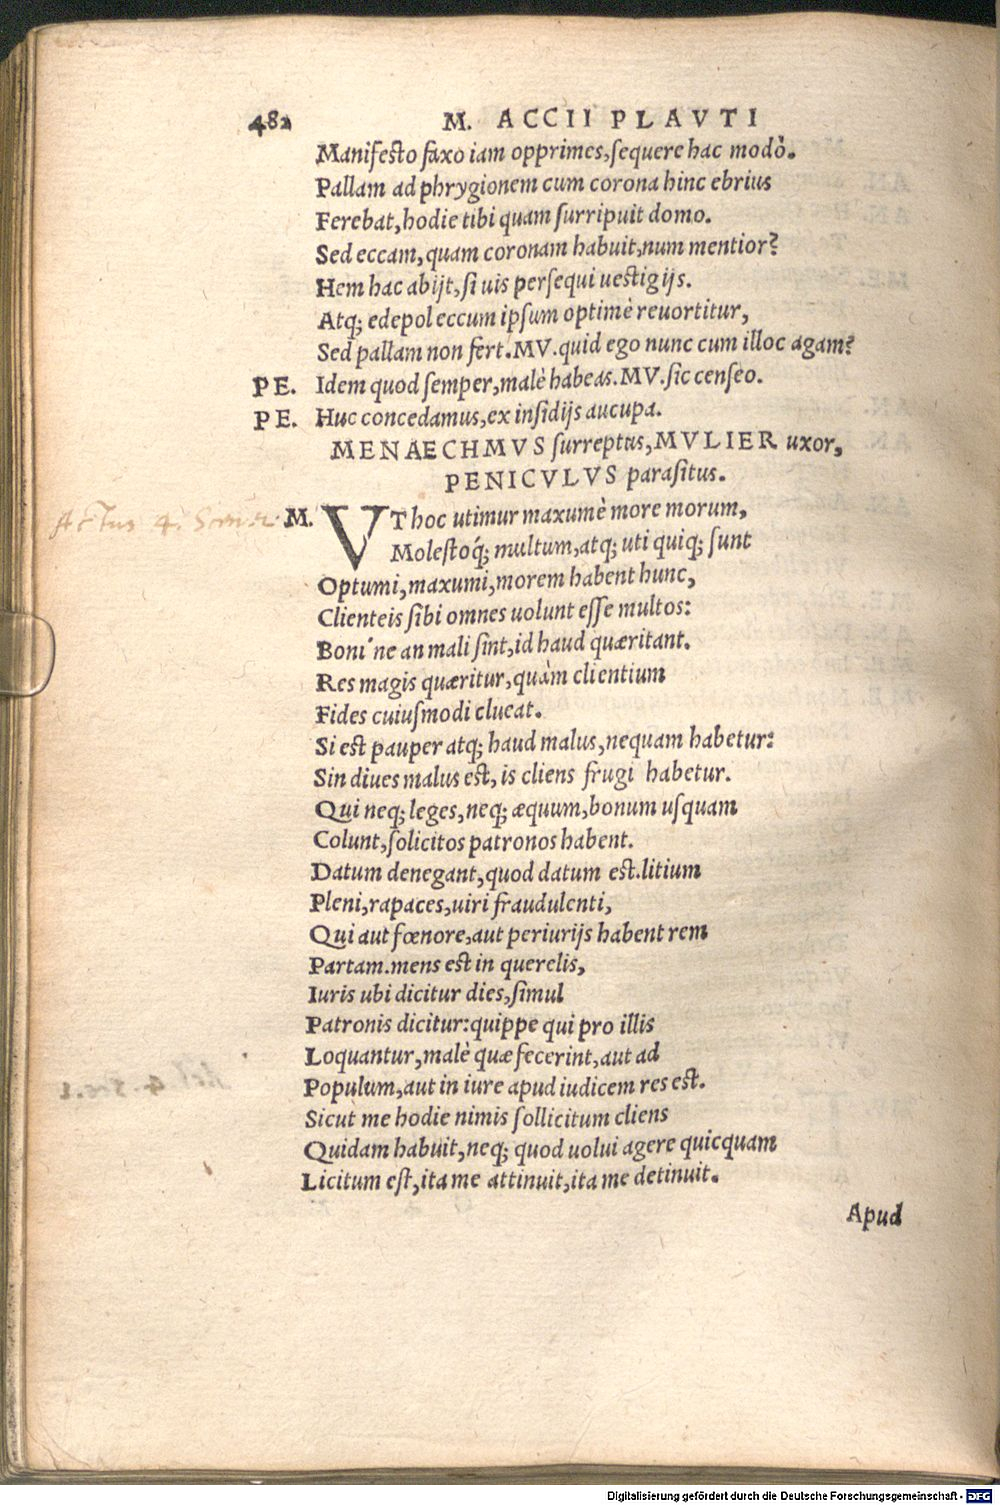 482 M. ACCII PLAVTI
Manifesto faxo iam opprimes, sequere hac modò.
Pallam ad phrygionem cum corona hinc ebrius
Ferebat, hodie tibi quam surripuit domo.
Sed eccam, quam coronam habuit, num mentior?
Hem hac abijt, si uis persequi uestigijs.
Atq; edepol eccum ipsum optimè reuortitur,
Sed pallam non fert. MV. quid ego nunc cum illoc agam?
PE. Idem quod semper, malè habeas. MV. sic censeo.
PE. Huc concedamus, ex insidijs aucupa.
MENAECHMVS surreptus, MVLIER uxor,
PENICVLVS parasitus.
Actus 4.
M. VT hoc utimur maxumè more morum,
Molestoq́; multum, atq; uti quiq; sunt
Optumi, maxumi, morem habent hunc,
Clienteis sibi omnes uolunt esse multos:
Boni'ne an mali sint, id haud quæritant.
Res magis quæritur, quàm clientium
Fides cuiusmodi clueat.
Si est pauper atq; haud malus, nequam habetur:
Sin diues malus est, is cliens frugi habetur.
Qui neq; leges, neq; æquum, bonum usquam
Colunt, solicitos patronos habent.
Datum denegant, quod datum est. litium
Pleni, rapaces, uiri fraudulenti,
Qui aut fœnore, aut periurijs habent rem
Partam. mens est in querelis,
Iuris ubi dicitur dies, simul
Patronis dicitur: quippe qui pro illis
Loquantur, malè quæ fecerint, aut ad
Populum, aut in iure apud iudicem res est.
Sicut me hodie nimis sollicitum cliens
Quidam habuit, neq; quod uolui agere quicquam
Licitum est, ita me attinuit, ita me detinuit.
Apud
Digitalisierung gefördert durch die Deutsche Forschungsgemeinschaft - DFG